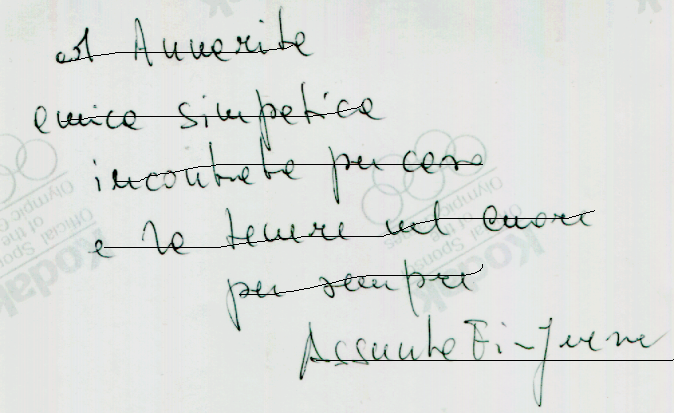 ad Annarita
amica simpatica
incontrata per caso
e da tenere nel cuore
per sempre
Assunta
Kodak
Official Sponsor
of the
Olympic
Kodak
Official Sponsor
of the
Olympic